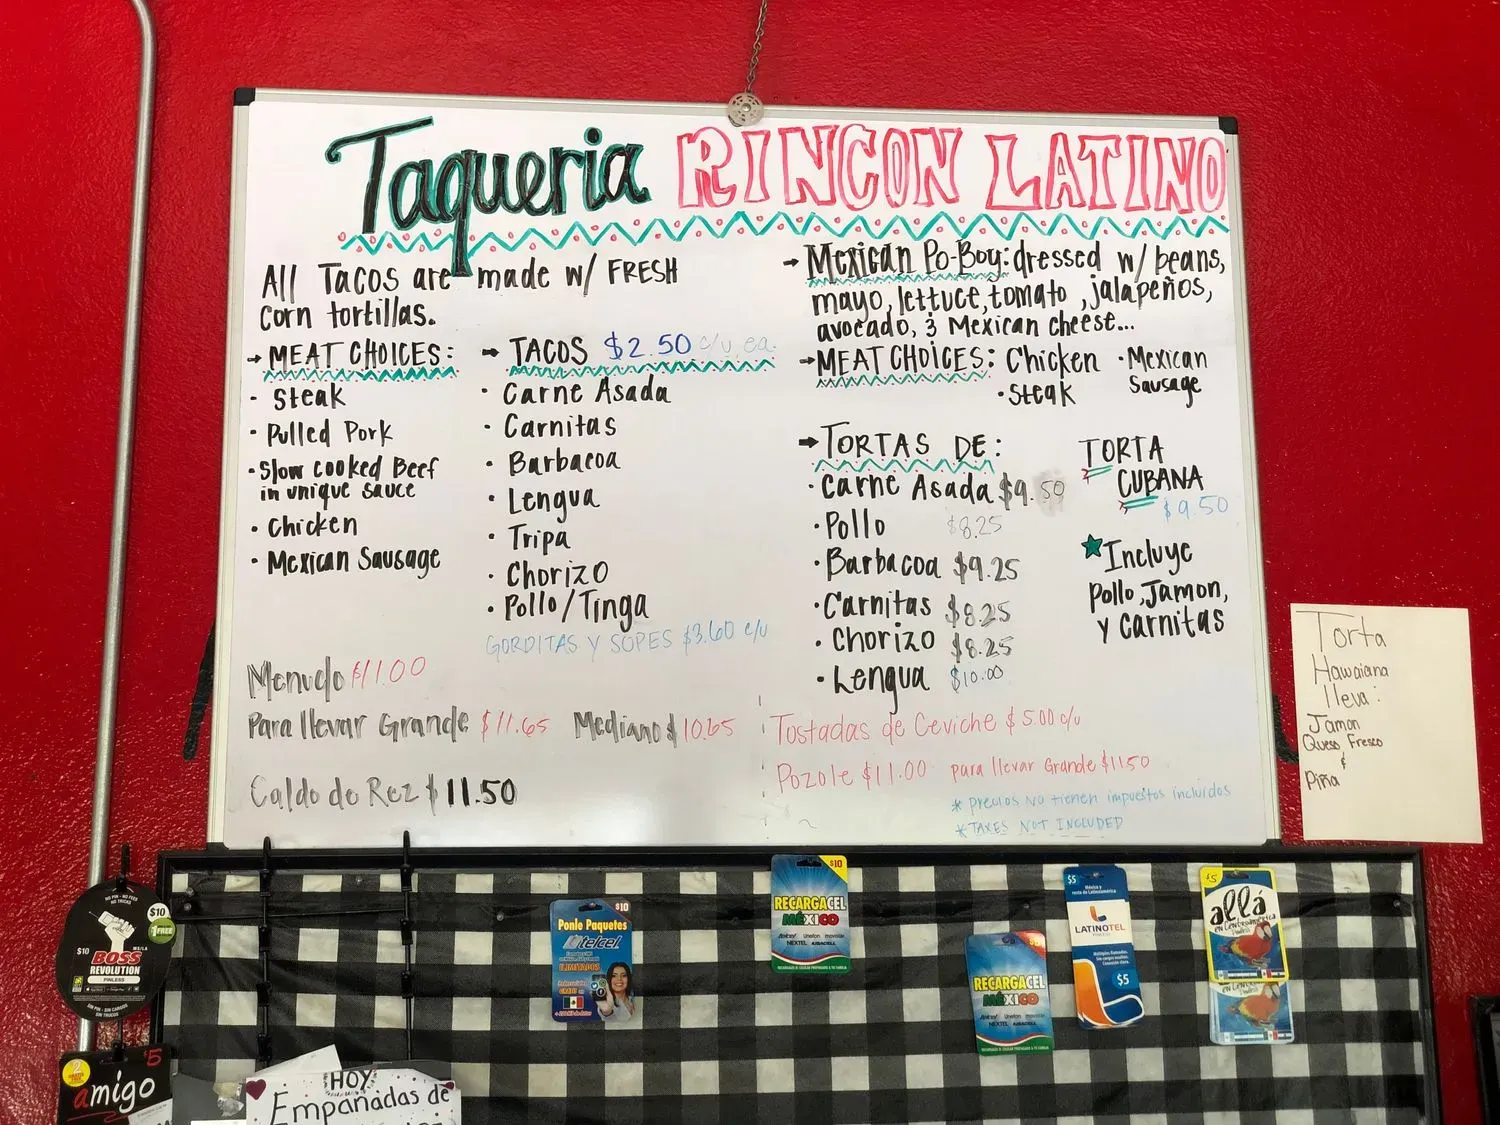 Taqueria RINCON LATINO
All Tacos are made w/ FRESH
corn tortillas.
→ MEAT CHOICES:
· Steak
· Pulled Pork
· Slow cooked Beef
in unique sauce
· Chicken
· Mexican Sausage
→ TACOS $2.50 c/u, ea.
· Carne Asada
· Carnitas
· Barbacoa
· Lengua
· Tripa
· Chorizo
· Pollo/Tinga
GORDITAS Y SOPES $3.60 c/u
Menudo $11.00
Para llevar Grande $11.65 Mediano $10.65
Caldo de Rez $11.50
→ Mexican Po-Boy: dressed w/ beans,
mayo, lettuce, tomato, jalapeños,
avocado, & Mexican cheese...
→ MEAT CHOICES: Chicken · Mexican
Sausage
· Steak
→ TORTAS DE:
· Carne Asada $9.50
· Pollo $8.25
· Barbacoa $9.25
· Carnitas $8.25
· Chorizo $8.25
· Lengua $10.00
TORTA
CUBANA
$9.50
★ Incluye
Pollo, Jamon,
y Carnitas
Tostadas de Ceviche $5.00 c/u
Pozole $11.00 para llevar Grande $11.50
* Precios no tienen impuestos incluidos
* TAXES NOT INCLUDED
Torta
Hawaiana
lleva:
Jamon
Queso Fresco
&
Piña
NO PIN · NO FEES
NO TRICKS
$10
1 FREE
$10
BOSS
REVOLUTION
PINLESS
SIN PIN · SIN CARGOS
SIN TRUCOS
$5
2
amigo
HOY
Empanadas de
$10
Ponle Paquetes
telcel
ILIMITADOS
$10
RECARGACEL
MÉXICO
Telcel Unefon movistar
NEXTEL IUSACELL
RECARGACEL
MÉXICO
Telcel Unefon movistar
NEXTEL IUSACELL
$5
México y
resto de Latinoamérica
LATINOTEL
$5
$5
allá
en Centroamérica